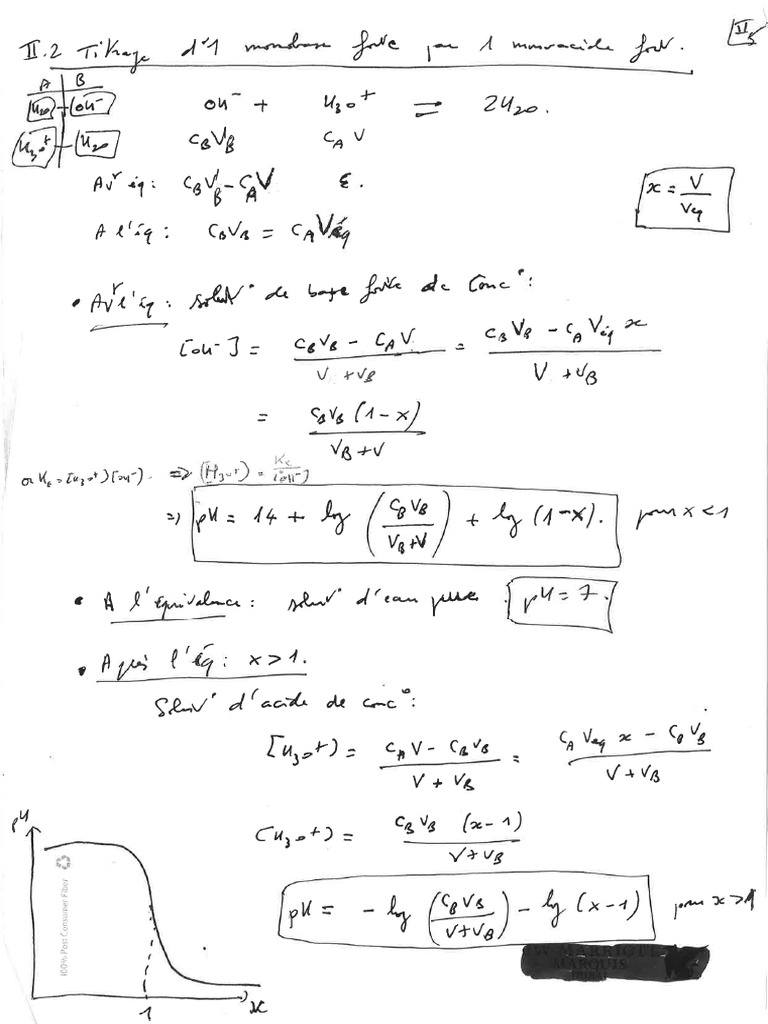 II.2 Titrage d'1 monobase forte par 1 monoacide fort.
II
5
A B
H2O OH⁻
H3O⁺ H2O
OH⁻ + H3O⁺ = 2H2O.
CBVB CAV
Avᵗ éq: CBVB - CAV ε.
x = V/Veq
A l'éq: CBVB = CAVéq
• Avᵗ l'éq: solut° de base forte de conc°:
[OH⁻] = (CBVB - CAV)/(V + VB) = (CBVB - CAVéq x)/(V + VB)
= CBVB (1-x)/(VB+V)
or Ke = [H3O⁺][OH⁻]. => [H3O⁺] = Ke/[OH⁻]
=> pH = 14 + log (CBVB/(VB+V)) + log (1-x). pour x < 1
• A l'équivalence: solut° d'eau pure. pH = 7.
• Après l'éq: x > 1.
Solut° d'acide de conc°:
[H3O⁺] = (CAV - CBVB)/(V + VB) = (CAVeq x - CBVB)/(V + VB)
[H3O⁺] = CBVB (x-1)/(V+VB)
pH = - log (CBVB/(V+VB)) - log (x-1) pour x > 1
pH
100% Post Consumer Fiber
1
x
JW MARRIOTT
MARQUIS
DUBAI